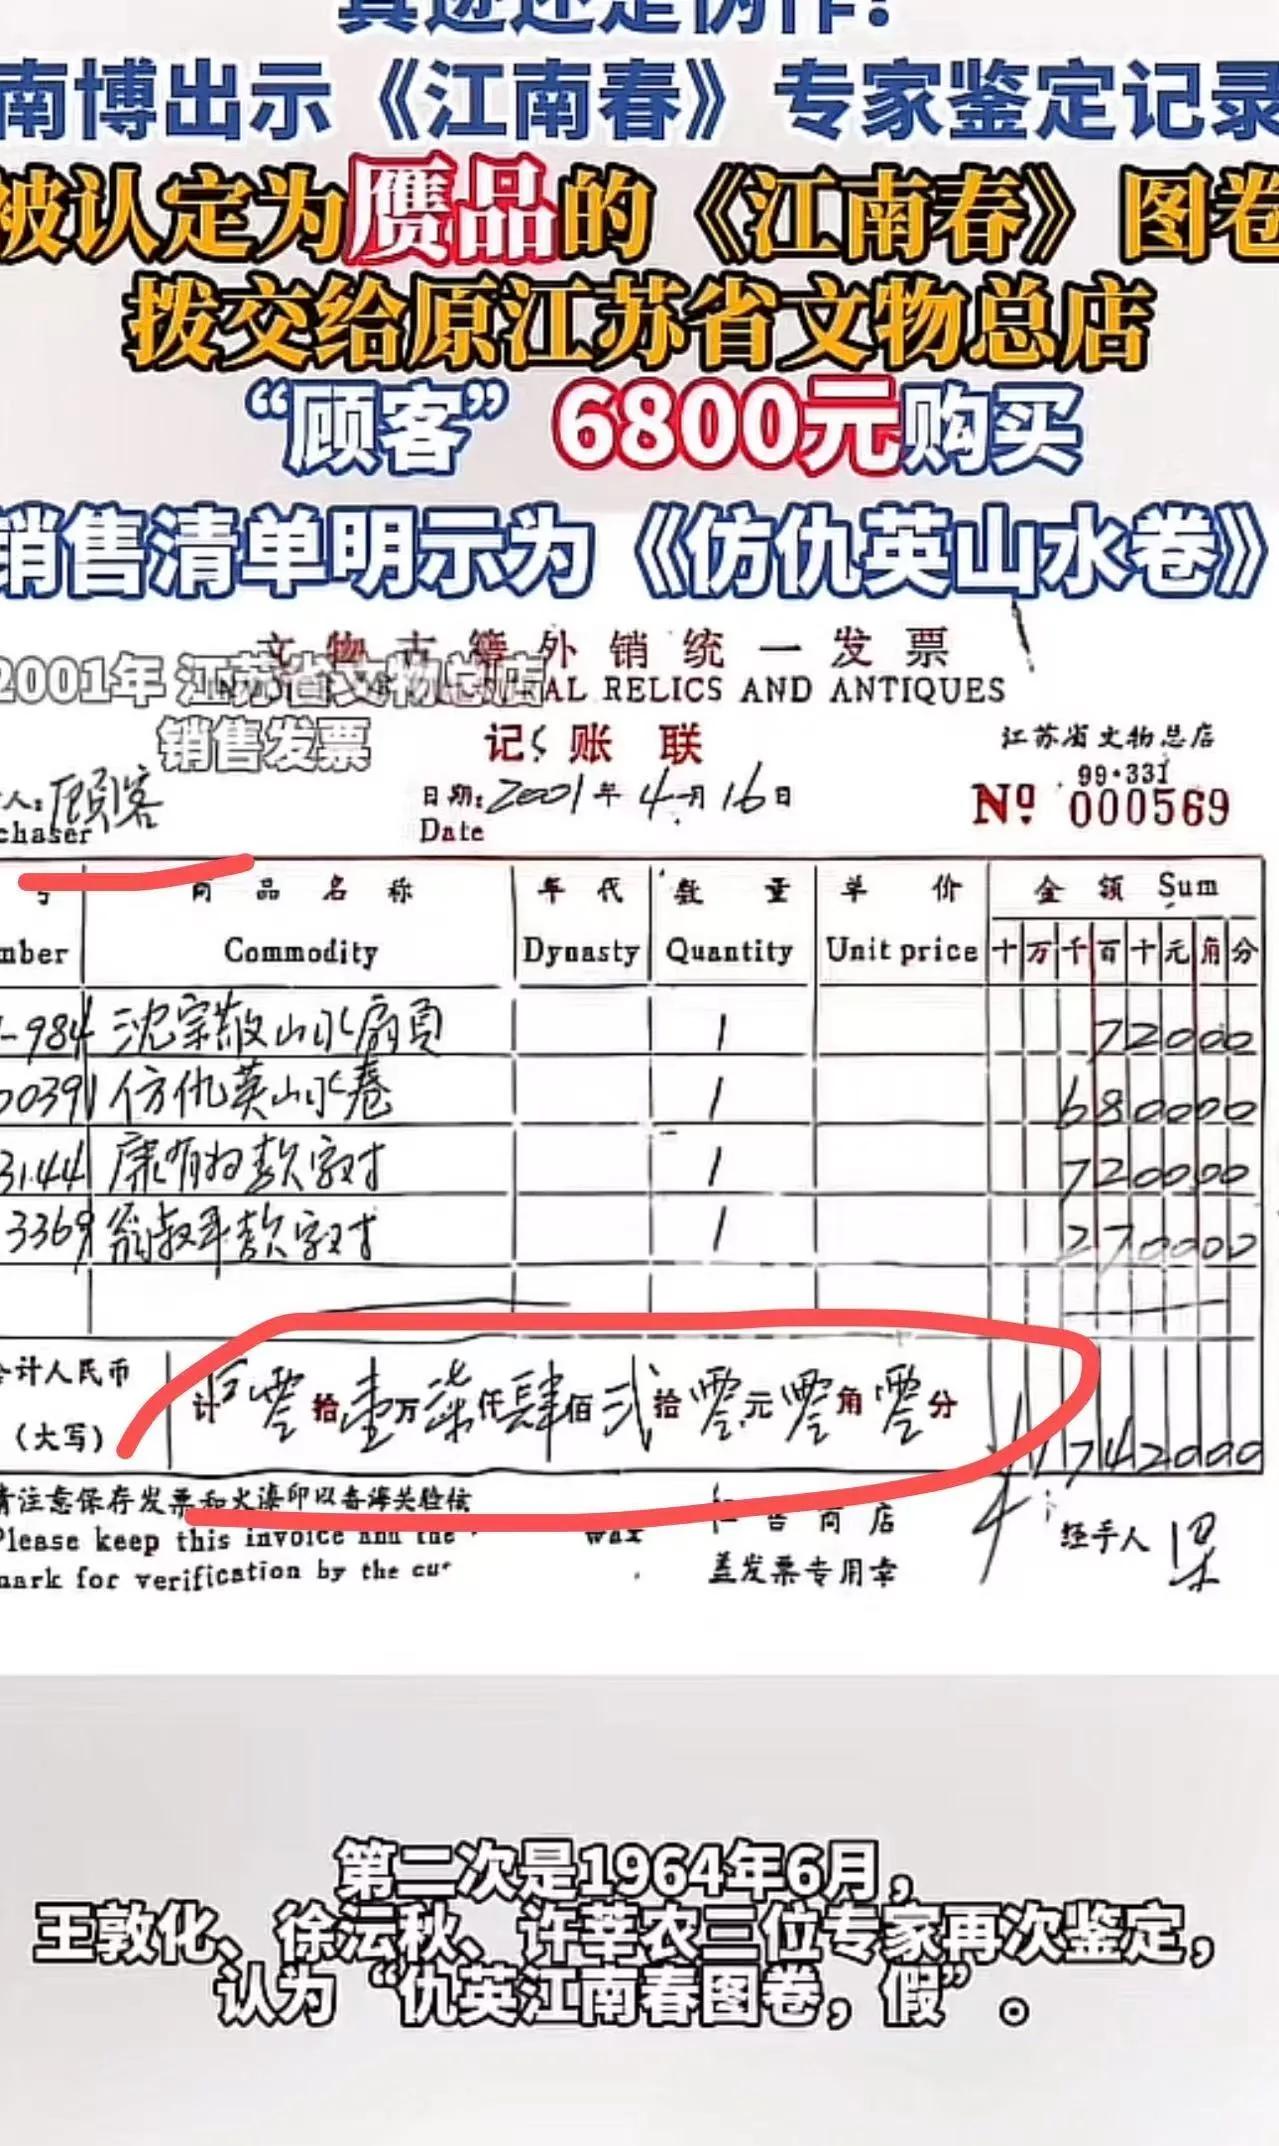 真迹还是伪作?
南博出示《江南春》专家鉴定记录
被认定为赝品的《江南春》图卷
拨交给原江苏省文物总店
“顾客”6800元购买
销售清单明示为《仿仇英山水卷》
文物古籍外销统一发票
2001年 江苏省文物总店
RAL RELICS AND ANTIQUES
销售发票
记账联
江苏省文物总店
99·331
人:顾客
chaser
日期:2001年4月16日
Date
Nº 000569
号 商品名称 年代 数量 单价 金额 Sum
mber Commodity Dynasty Quantity Unit price 十万千百十元角分
-984 沈宗敬山水扇页 1 72000
00391 仿仇英山水卷 1 680000
3144 康有为款字对 1 720000
3369 翁叔平款字对 1 270000
合计人民币
(大写)
计零拾壹万柒仟肆佰贰拾零元零角零分 1742000
请注意保存发票和火漆印以备海关验核
Please keep this invoice and the wax
售商店
mark for verification by the cu
盖发票专用章
经手人
第二次是1964年6月,
王敦化、徐沄秋、许莘农三位专家再次鉴定,
认为“仇英江南春图卷,假”。